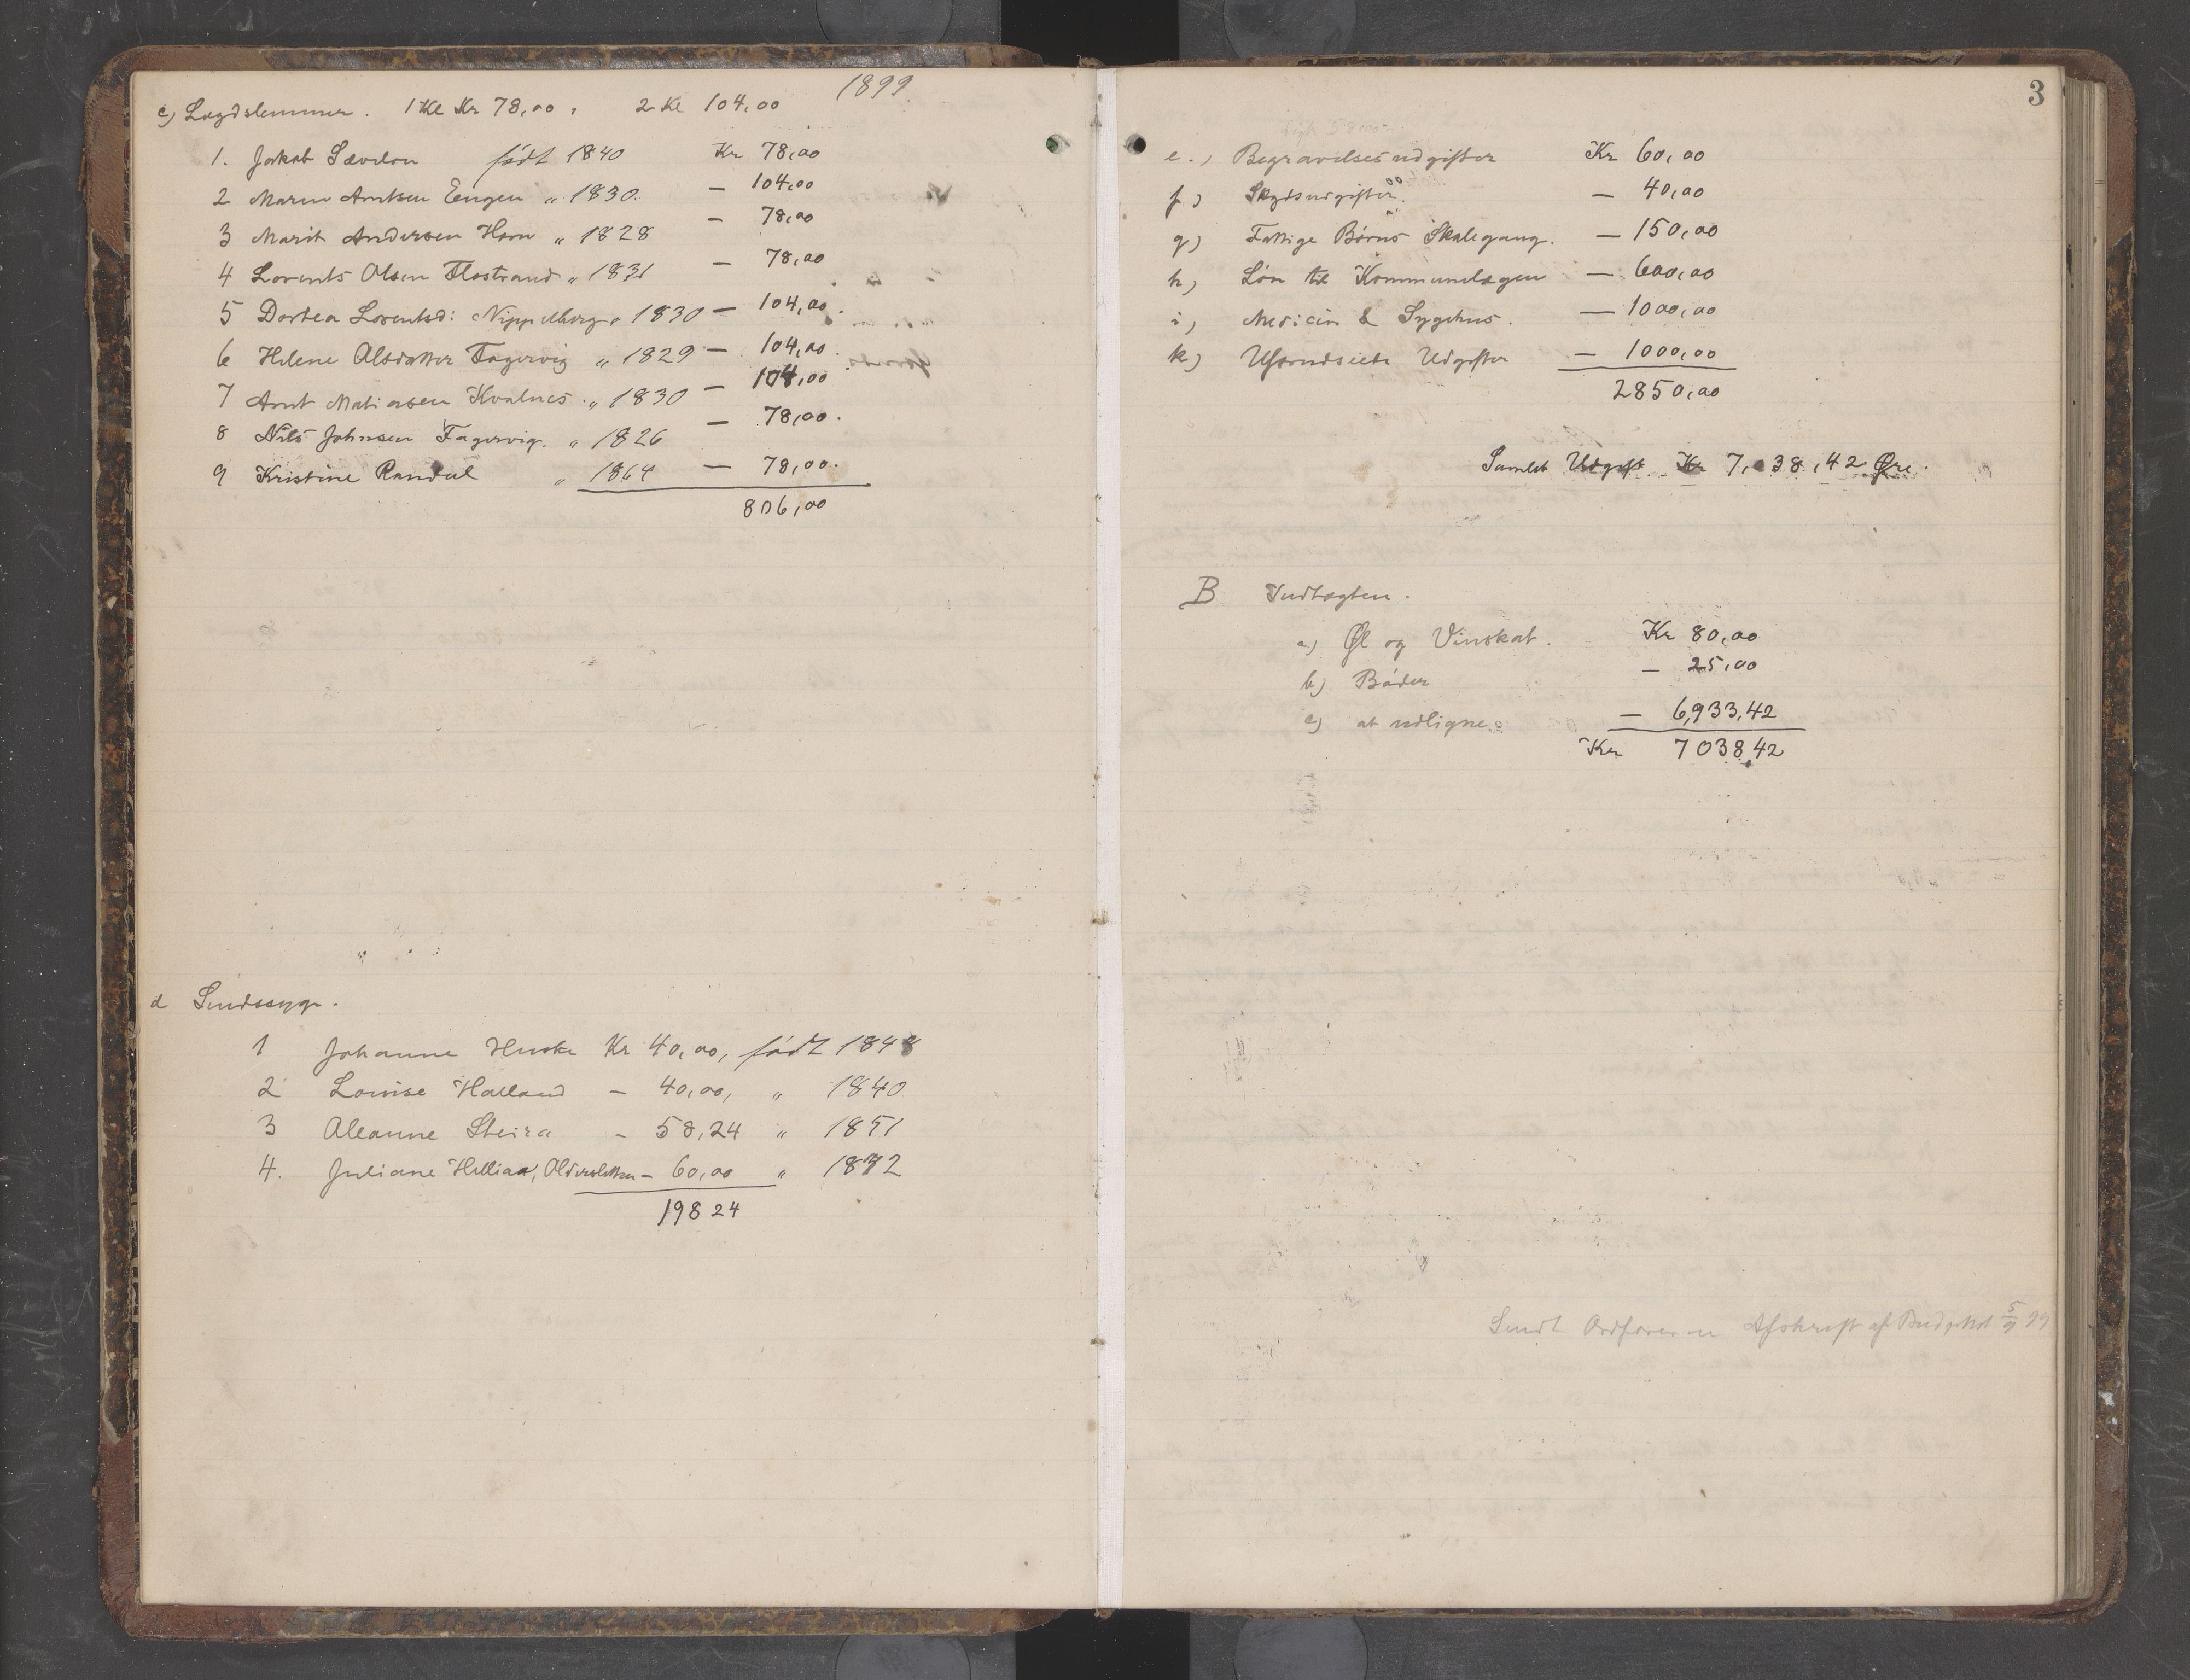 1899
c) Lægdslemmer. 1 Kl Kr 78,00, 2 Kl 104,00
1. Jakob Sævelen født 1840 Kr 78,00
2 Maren Arntsen Engen „ 1830. — 104,00
3 Marit Andersen Havn „ 1828 — 78,00
4 Lorents Olsen Flostrand „ 1831 — 78,00
5 Dortea Lorentsd: Nippelberg „ 1830 — 104,00.
6 Helene Olsdatter Fagervig „ 1829 — 104,00.
7 Arnt Matiasen Kvalnes „ 1830 — 104,00
8 Nils Johnsen Fagervig. „ 1826 — 78,00.
9 Kristine Randal „ 1864 — 78,00.
806,00
d Sindssyge.
1 Johanne Huske Kr 40,00, født 1848
2 Lovise Halland — 40,00, „ 1840
3 Aleanne Steira — 58,24 „ 1851
4. Juliane Hellian, Oldersletten — 60,00 „ 1872
198 24
3
e.) Begravelsesudgifter Kr 60,00
f) Skydsudgifter. — 40,00
g) Fattige Børns Skolegang. — 150,00
h) Løn til Kommunelægen — 600,00
i) Medicin & Sygehus. — 1000,00
k) Uforudseete Udgifter — 1000,00
2850,00
Samlet Udgift Kr 7,038,42 Øre.
B Indtægten.
a) Øl og Vinskat. Kr 80,00
b) Bøder — 25,00
c) at udligne. — 6,933,42
Kr 7038,42
Sendt Ordføreren Afskrift af Budgettet 5/9 99